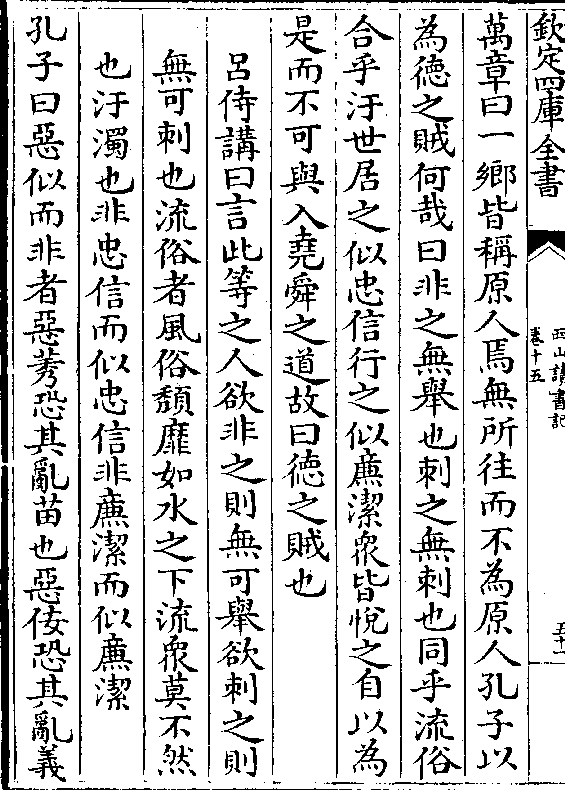 欽定四庫全書
西山讀書記
卷十五
五十一
萬章曰一鄉皆稱原人焉無所往而不為原人孔子以
為德之賊何哉曰非之無舉也刺之無刺也同乎流俗
合乎汙世居之似忠信行之似廉潔衆皆悅之自以為
是而不可與入堯舜之道故曰德之賊也
呂侍講曰言此等之人欲非之則無可舉欲刺之則
無可刺也流俗者風俗頽靡如水之下流衆莫不然
也汙濁也非忠信而似忠信非廉潔而似廉潔
孔子曰惡似而非者惡莠恐其亂苗也惡佞恐其亂義